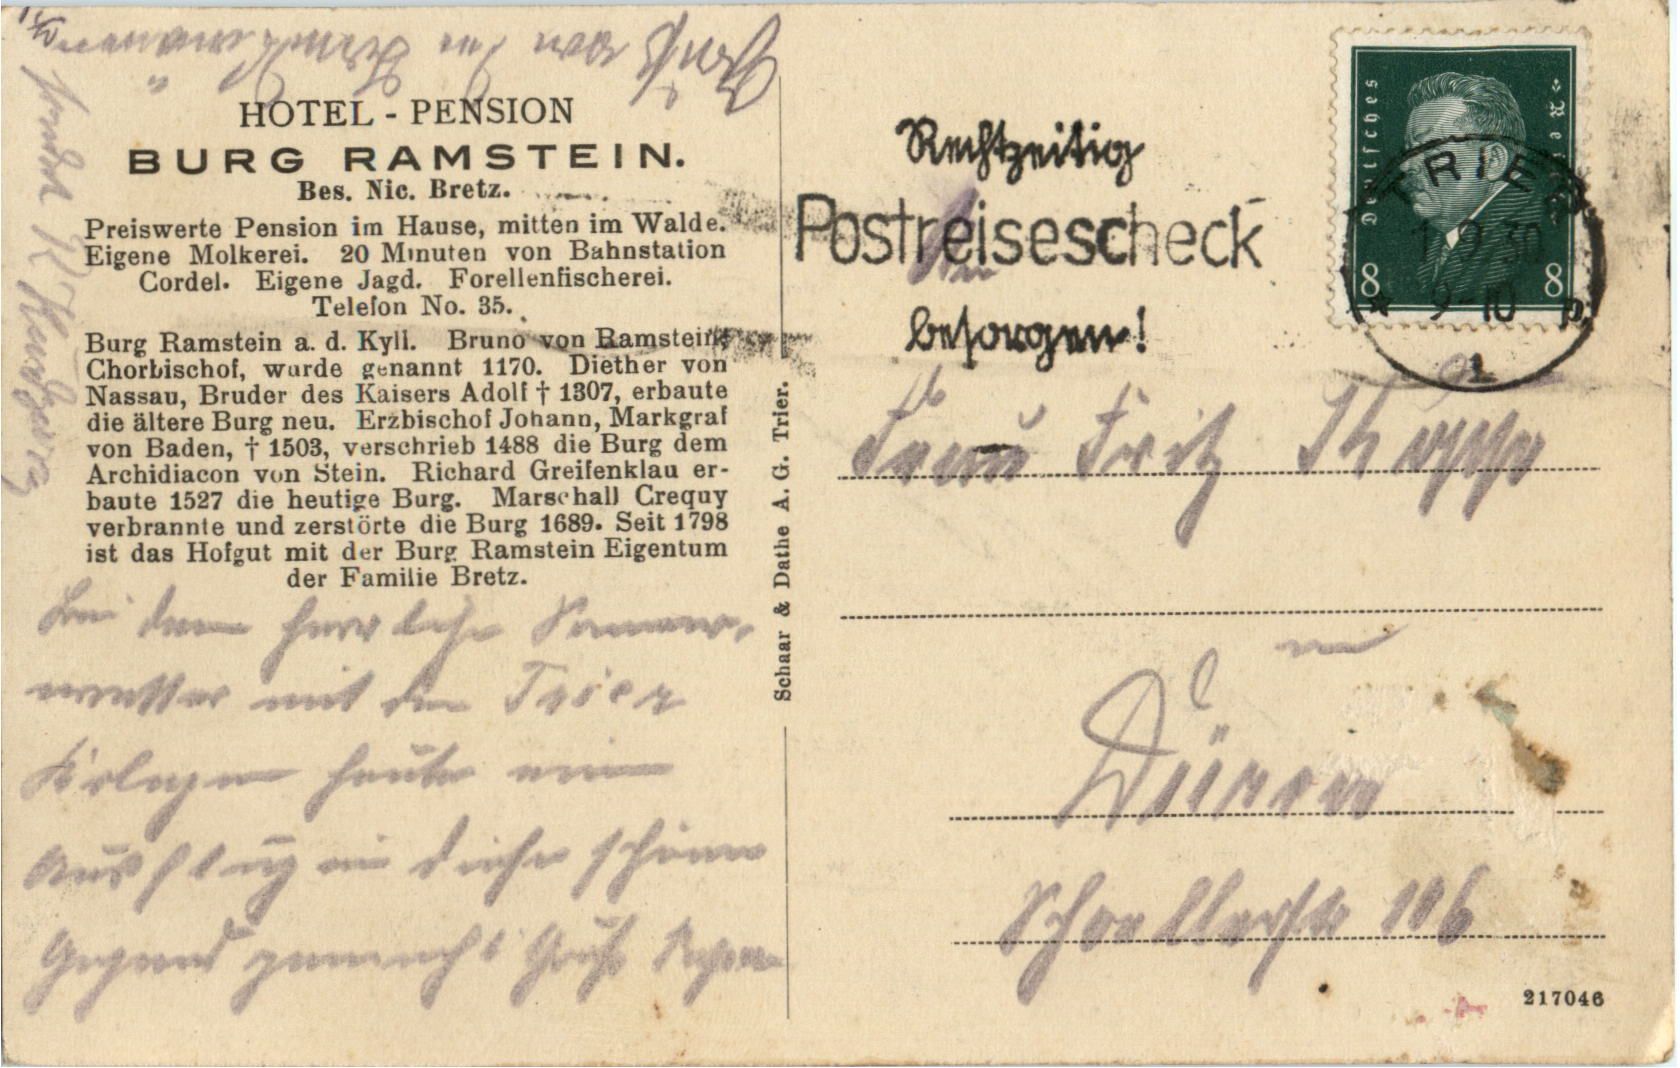 HOTEL - PENSION
BURG RAMSTEIN.
Bes. Nic. Bretz.
Preiswerte Pension im Hause, mitten im Walde.
Eigene Molkerei. 20 Minuten von Bahnstation
Cordel. Eigene Jagd. Forellenfischerei.
Telefon No. 35.
Burg Ramstein a. d. Kyll. Bruno von Ramstein,
Chorbischof, wurde genannt 1170. Diether von
Nassau, Bruder des Kaisers Adolf † 1307, erbaute
die ältere Burg neu. Erzbischof Johann, Markgraf
von Baden, † 1503, verschrieb 1488 die Burg dem
Archidiacon von Stein. Richard Greifenklau er-
baute 1527 die heutige Burg. Marschall Crequy
verbrannte und zerstörte die Burg 1689. Seit 1798
ist das Hofgut mit der Burg Ramstein Eigentum
der Familie Bretz.
Bei dem herrliche Sommer-
wetter mit den Trier
Kolegen heute einen
Ausflug in diese schöne
Gegend gemacht Gruß
Schaar & Dathe A. G. Trier.
Rechtzeitig
Postreisescheck
besorgen!
Deutsches Reich
8 8
TRIER
1.9.30
9-10
1
Frau Fritz
in
Düren
Schoellerstr 106
217046